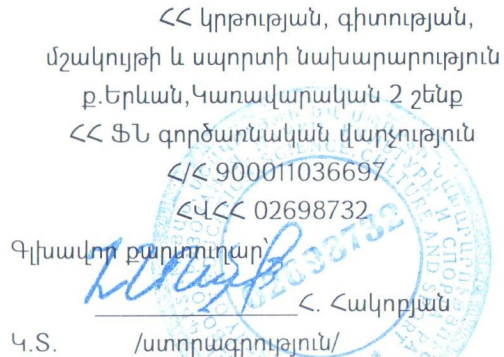 ՀՀ կրթության, գիտության,
մշակույթի և սպորտի նախարարություն
ք.Երևան,Կառավարական 2 շենք
ՀՀ ՖՆ գործառնական վարչություն
Հ/Հ 900011036697
ՀՎՀՀ 02698732
Գլխավոր քարտուղար՝
Հ. Հակոբյան
Կ.Տ. /ստորագրություն/
02698732